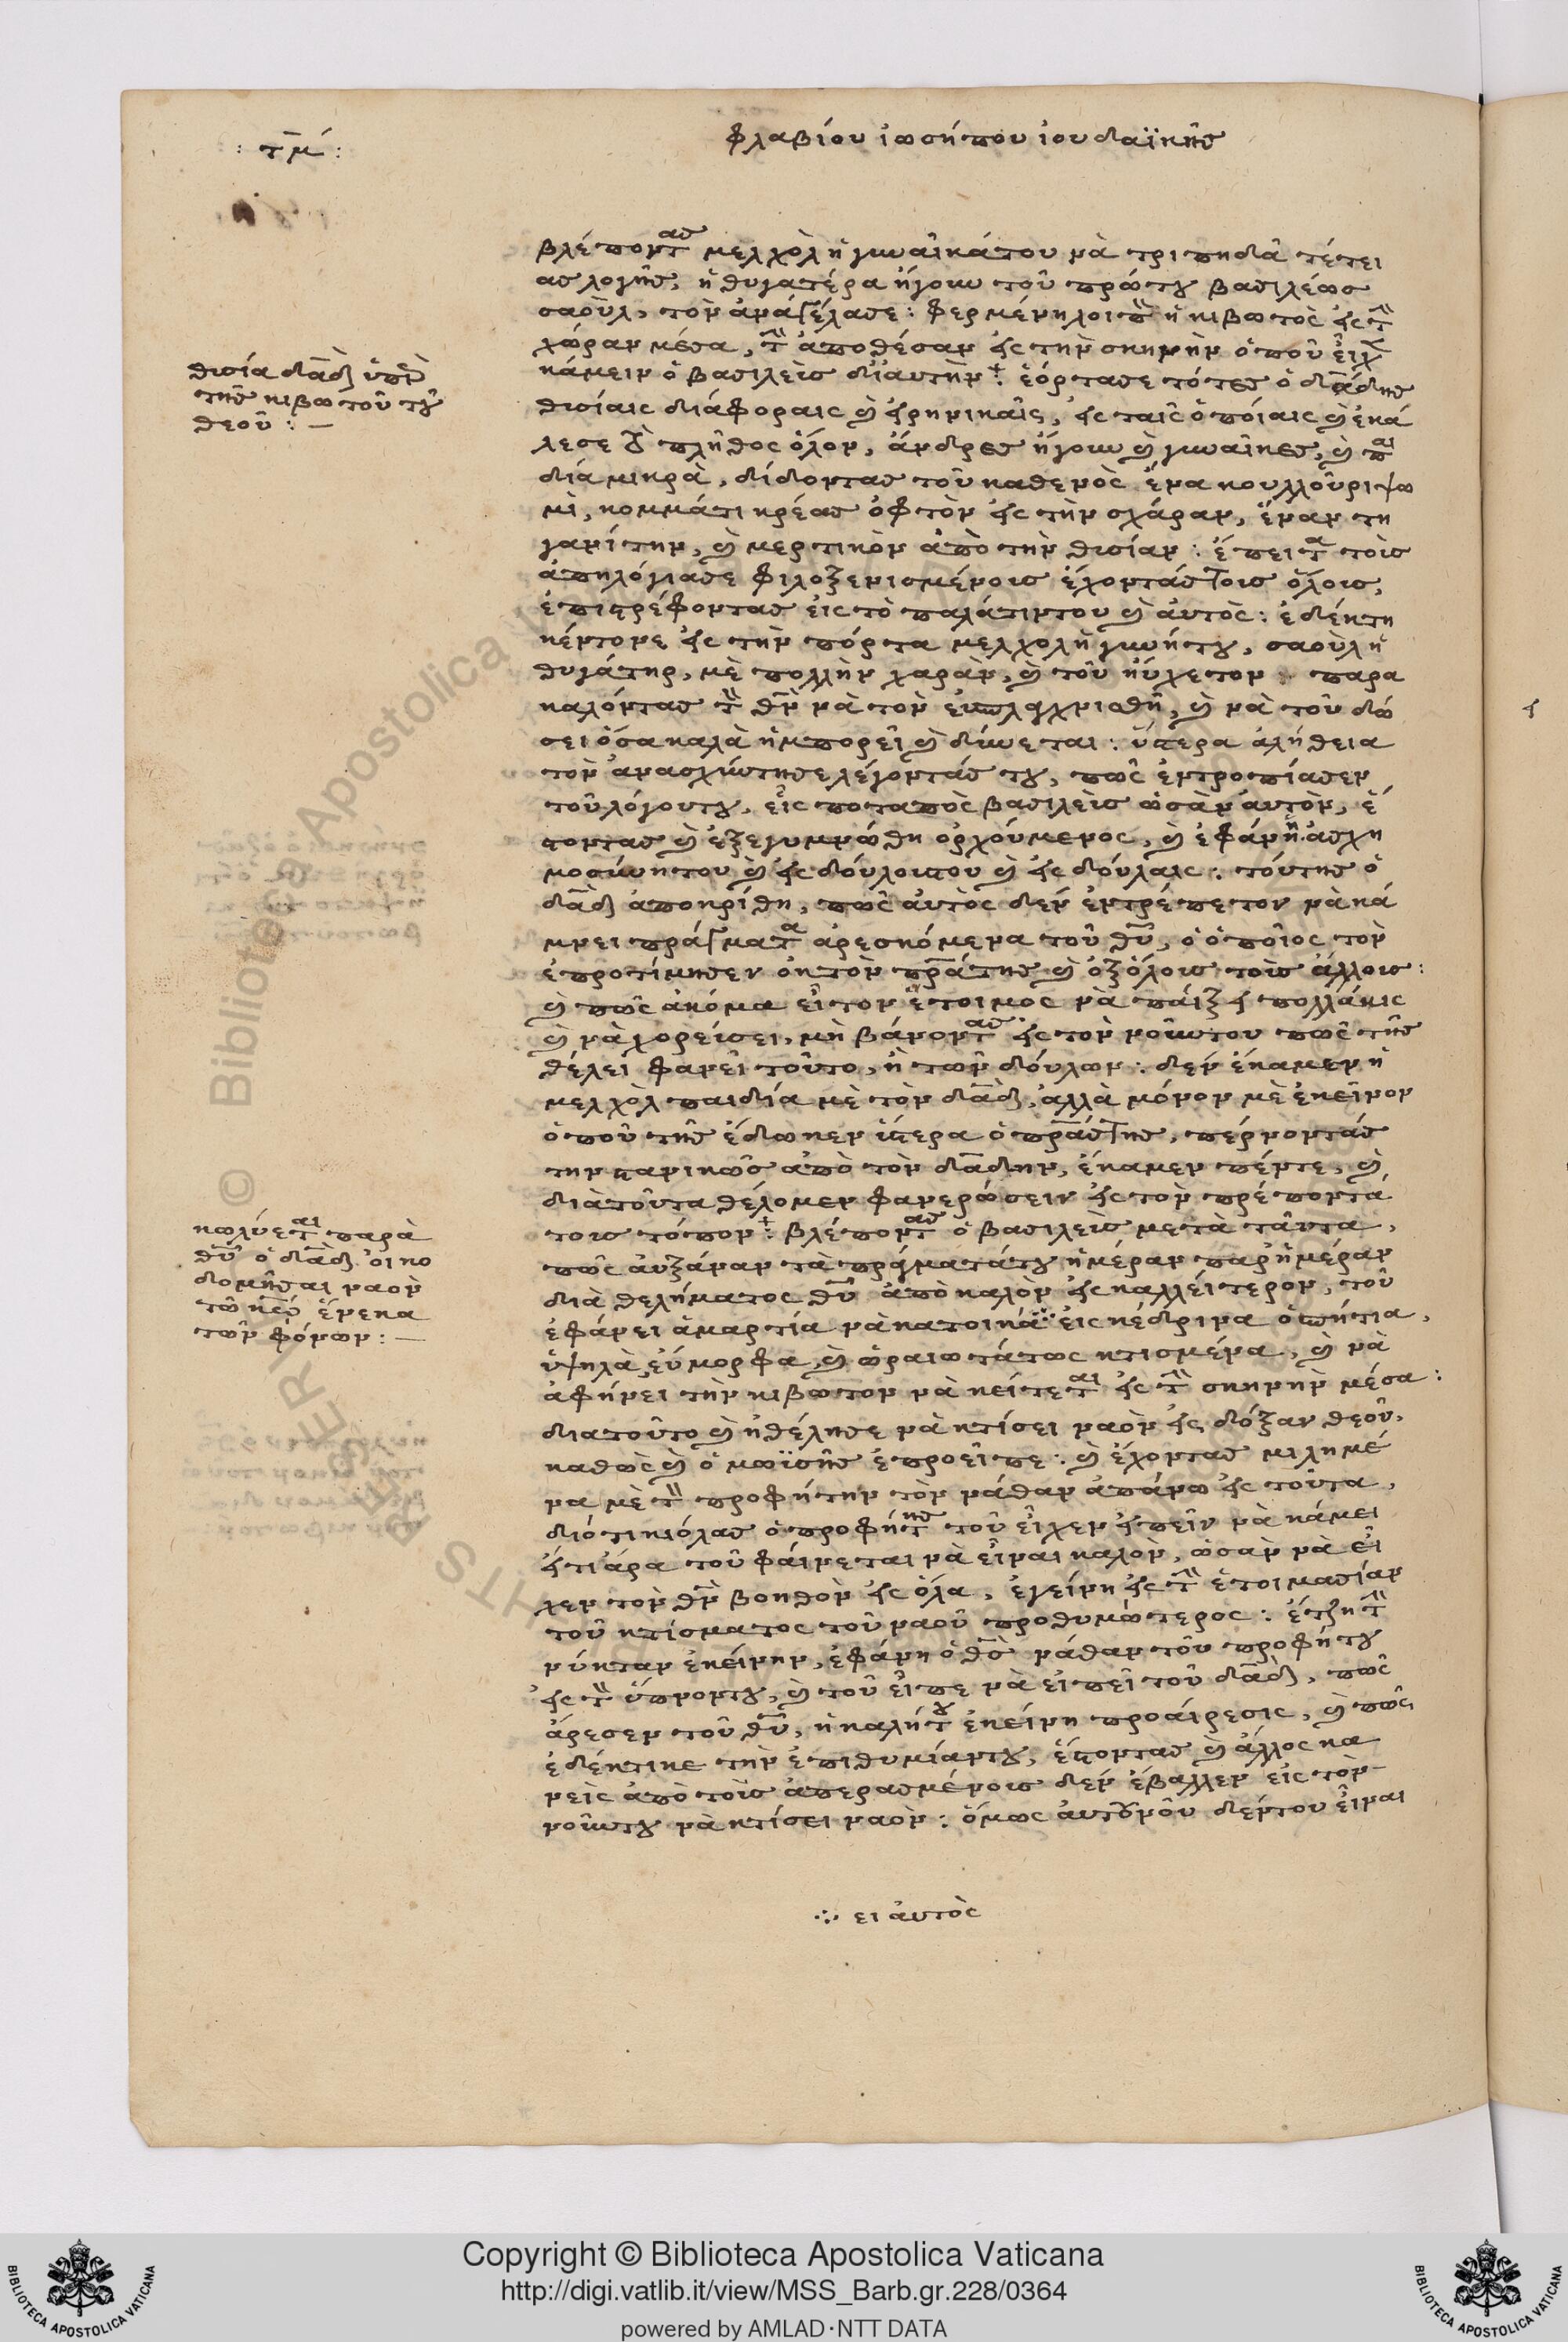 : τμ :
φλαβίου ἰωσήπου ἰουδαϊκῆς
βλέποντας μελχὸλ ἡ γυναῖκά του νὰ τριπηδᾶ τέτει
ας λογῆς, ἡ θυγατέρα ἤγουν τοῦ πρώτου βασιλέως
σαοὺλ, τὸν ἀναγέλασε : φερμένη λοιπὸν ἡ κιβωτὸς εἰς τὴν
χώραν μέσα, τὴν ἀποθέσαν εἰς τὴν σκηνὴν ὁποῦ εἶχε
κάμειν ὁ βασιλεὺς διαυτὴν : ἑόρτασε τότες ὁ δαδης
θυσίαις διάφοραις καὶ εἰρηνικαῖς, εἰς ταῖς ὁποίαις καὶ ἐκά
λεσε τὸ πλῆθος ὅλον, ἄνδρες ἤγουν καὶ γυναῖκες, καὶ παι
διὰ μικρὰ, δίδοντας τοῦ καθενὸς ἕνα κουλλοῦρι ψω
μὶ, κομμάτι κρέας ὀφτὸν εἰς τὴν σχάραν, ἕναν τη
γανίτην, καὶ μερτικὸν ἀπὸ τὴν θυσίαν : ἔπειτα τοὺς
ἀπηλόγιασε φιλοξενισμένους ἐχορτάς τους ὅλους,
ἐπιστρέφοντας εἰς τὸ παλάτιντου καὶ ἀυτὸς : ἐδέκτη
κέντονε εἰς τὴν πόρτα μελχολ ἡ γυνήτου, σαοὺλ ἡ
θυγάτηρ, μὲ πολλὴν χαρὰν, καὶ τοῦ ηὔχετον παρα
καλόντας τὸν θν νὰ τὸν εὐσπλαγχνισθῆ, καὶ νὰ τοῦ δώ
σει ὅσα καλὰ ἠμπορεῖ καὶ δύνεται : ὕστερα ἀλήθεια
τὸν ἀνασχύντησε λέγοντάς του, πῶς ἐντροπίασεν
τοῦ λόγουτου, εἷς ποταπὸς βασιλεὺς ὡσὰν ἀυτὸν, ἔ
στοντας καὶ ἐξεγυμνώθη ὀρχούμενος, καὶ ἐφάνη ἡ ἀσχη
μοσύνητου καὶ εἰς δούλουςτου καὶ εἰς δούλαις : τούτης ὁ
δαδ ἀποκρίθη, πῶς ἀυτὸς δὲν ἐντρέπετον νὰ κά
μνει πράγματα ἀρεσκόμενα τοῦ θυ, ὁ ὁποῖος τὸν
ἐπροτίμησεν ἐκ τὸν πρατης καὶ ἐξ ὅλους τοὺς ἄλλους :
καὶ πῶς ἀκόμα εἶτον ἕτοιμος νὰ παίξει πολλάκις
καὶ νὰ χορεύσει, μὴ βάνοντας εἰς τὸν νοῦντου πῶς τῆς
θέλει φανεῖ τοῦτο, ἢ τῶν δούλων : δὲν ἔκαμεν ἡ
μελχὸλ παιδία μὲ τὸν δαδ, ἀλλὰ μόνον μὲ ἐκεῖνον
ὁποῦ τῆς ἔδωκεν ὕστερα ὁ πρας της, πέρνοντάς
την στανικῶς ἀπὸ τὸν δαδην, ἔκαμεν πέντε, καὶ
διὰ τοῦτα θέλομεν φανερώσειν εἰς τὸν πρέποντά
τους τόπον : βλέποντας ὁ βασιλεὺς μετὰ ταῦτα,
πῶς ἀυξάναν τὰ πράγματάτου ἡμέραν παρ' ἡμέραν
διὰ θελήματος θυ ἀπὸ καλὸν εἰς καλλείτερον, τοῦ
ἐφάνει ἁμαρτία νὰ κατοικᾶ εἰς κέδρινα ὁσπήτια,
ὑψηλὰ εὔμορφα, καὶ ὡραιωτάτως κτισμένα, καὶ νὰ
ἀφήνει τὴν κιβωτον νὰ κείτεται εἰς τὴν σκηνὴν μέσα :
διατοῦτο καὶ ἠθέλησε νὰ κτίσει ναὸν εἰς δόξαν θεοῦ,
καθὼς καὶ ὁ μωϋσῆς ἐπροεῖπε : καὶ ἔχοντας μιλημέ
να μὲ τὸν προφήτην τὸν νάθαν ἀπάνω εἰς τοῦτα,
διότι κιόλας ὁ προφήτης τοῦ εἶχεν εἰπεῖν νὰ κάμει
εἴτι ἄρα τοῦ φαίνεται νὰ εἶναι καλὸν, ὡσὰν νὰ εἶ
χεν τὸν θν βοηθὸν εἰς ὅλα, ἐγείνη εἰς τὴν ἑτοιμασίαν
τοῦ κτίσματος τοῦ ναοῦ προθυμώτερος : ἔτζη τὴν
νύκταν ἐκείνην, ἐφάνη ὁ θς νάθαν τοῦ προφήτου
εἰς τὸν ὕπνοντου, καὶ τοῦ εἶπε νὰ εἰπεῖ τοῦ δαδ, πῶς
ἄρεσεν τοῦ θυ, ἡ καλήτου ἐκείνη προαίρεσις, καὶ πῶς
ἐδέκτικε τὴν ἐπιθυμίαντου, ἔστοντας καὶ ἄλλος κα
νεὶς ἀπὸ τοὺς ἀπερασμένους δὲν ἔβαλλεν εἰς τὸν
νοῦντου νὰ κτίσει ναὸν : ὅμως ἀυτουνοῦ δέντου εἶναι
ει ἀυτὸς
θυσία δαδ ὑπὲρ
τῆς κιβωτοῦ τοῦ
θεοῦ : —
κωλύεται παρὰ
θυ ὁ δαδ οἰκο
δομῆσαι ναὸν
τῶ κω ἕνεκα
τῶν φόνων : —
Copyright © Biblioteca Apostolica Vaticana
http://digi.vatlib.it/view/MSS_Barb.gr.228/0364
powered by AMLAD·NTT DATA
BIBLIOTECA APOSTOLICA VATICANA
BIBLIOTECA APOSTOLICA VATICANA